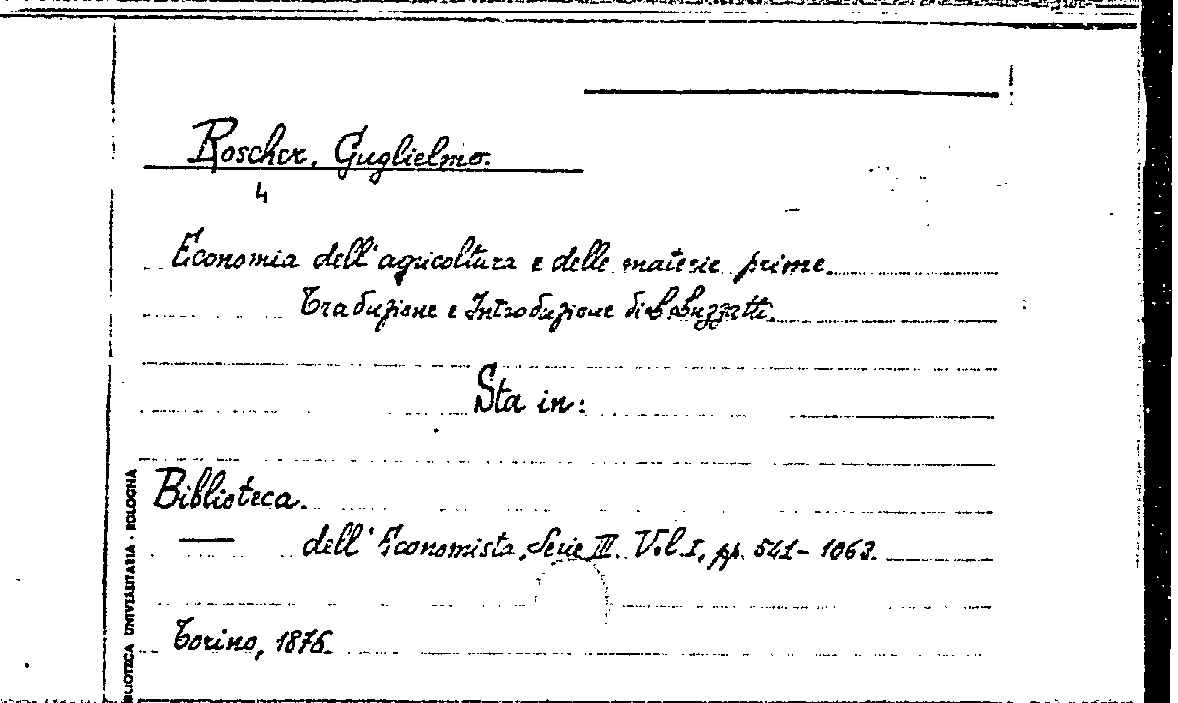 Roscher, Guglielmo.
4
Economia dell'agricoltura e delle materie prime.
Traduzione e Introduzione di L. Luzzatti.
Sta in:
Biblioteca
— dell'Economista, Serie III. Vol. I, pp. 541-1063.
Torino, 1876.
BLIOTECA UNIVERSITARIA - BOLOGNA